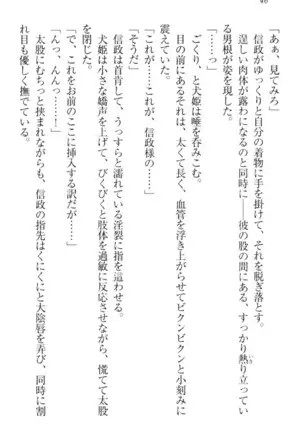 「あぁ、見てみろ」
信政がゆっくりと自分の着物に手を掛けて、それを脱ぎ落とす。
逞しい肉体が露わになるのと同時に――彼の股の間にある、すっかり熱り立ってい
る男根が姿を現した。
ごくり、と犬姫は唾を呑みこむ。
目の前にあるそれは、太くて長く、血管を浮き上がらせてビクンビクンと小刻みに
震えていた。
「これが……これが、信政様の……」
「そうだ」
信政は首肯して、うっすらと濡れている淫裂に指を這わせる。
犬姫は小さな嬌声を上げて、びくびくと肢体を過敏に反応させながら、慌てて太股
を閉じた。
「で、これをお前のここに挿入する訳だが……」
「んっ、んんっ……」
太股にむちっと挟まれながらも、信政の指先はくにくにと大陰唇を弄び、同時に割
れ目も優しく撫でている。